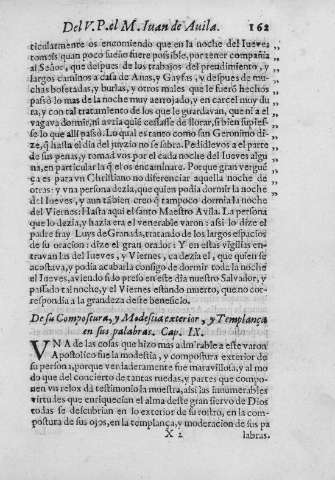 Del V. P. el M. Iuan de Auila. 162
ticularmente os encomiendo que en la noche del Iueues
tomais quan poco sueño fuere possible, por tener compañia
al Señor, que despues de los trabajos del prendimiento, y
largos caminos a casa de Anas, y Gayfas, y despues de mu-
chas bofetadas, y burlas, y otros males que le fuerõ hechos
passò lo mas de la noche muy aerrojado, y en carcel muy du
ra, y con tal tratamiento de los que le guardavan, que ni a el
vagava dormir, ni avria quiẽ cessasse de llorar, si bien supies-
se lo que alli passò. Lo qual es tanto como san Geronimo di-
ze, q̃ hasta el dia del juyzio no se sabra. Pedidlevos a el parte
de sus penas, y tomad vos por el cada noche del Iueves algu
na, en particular la q̃ el os encaminare. Porque gran verguẽ
ça es para vn Christiano no diferenciar aquella noche de
otras: y vna persona dezia, que quien podia dormir la noche
del Iueves, y aun tãbien creo q̃ tampoco dormia la noche
del Viernes: Hasta aqui el santo Maestro Avila. La persona
que lo dezia, y hazia era el venerable varon: assi lo dize el
padre fray Luys de Granada, tratando de los largos espacios
de su oracion: dize el gran orador: Y en estas vigilias en-
travan las del Iueves, y Viernes, ca dezia el, que quien se
acostava, y podia acabarla consigo de dormir toda la noche
el Iueves, aviendo sido preso en este dia nuestro Salvador, y
passada tal noche, y el Viernes estando muerto, que no cor-
respondia a la grandeza deste beneficio.
De su Compostura, y Modestia exterior, y Templança
en sus palabras. Cap. IX.
VNA de las cosas que hizo mas admirable a este varon
Apostolico fue la modestia, y compostura exterior de
su persona, porque verdaderamente fue maravillosa, y al mo
do que del concierto de tantas ruedas, y partes que compo-
nen vn relox da testimonio la muestra, assi las innumerables
virtudes que enriquecian el alma deste gran siervo de Dios
todas se descubrian en lo exterior de su rostro, en la com-
postura de sus ojos, en la templança, y moderacion de sus pa
X 2 labras.